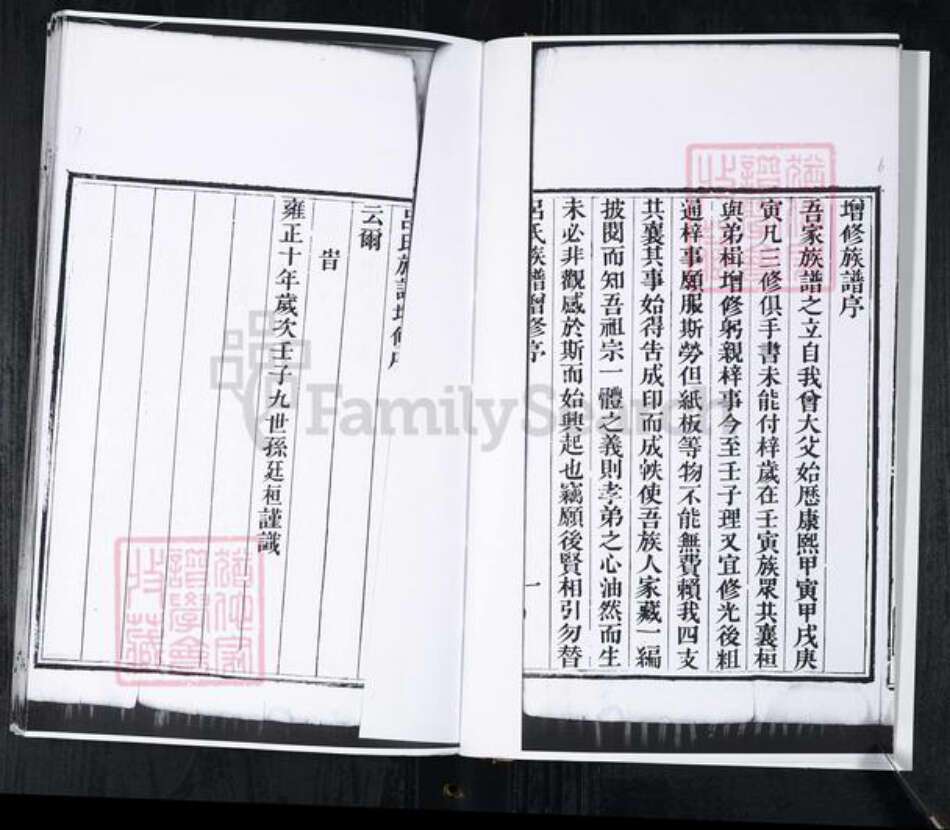 增修族譜序
吾家族譜之立自我曾大父始歷康熙甲寅甲戌庚
寅凡三修俱手書未能付梓歲在壬寅族眾共襄桓
與弟楫增修躬親梓事今至壬子理又宜修光後粗
通梓事願服斯勞但紙板等物不能無費賴我四支
共襄其事始得告成印而成帙使吾族人家藏一編
披閱而知吾祖宗一體之義則孝弟之心油然而生
未必非觀感於斯而始興起也竊願後賢相引勿替
呂氏族譜增修序 一
云爾
告
雍正十年歲次壬子九世孫廷桓謹識
FamilySearch